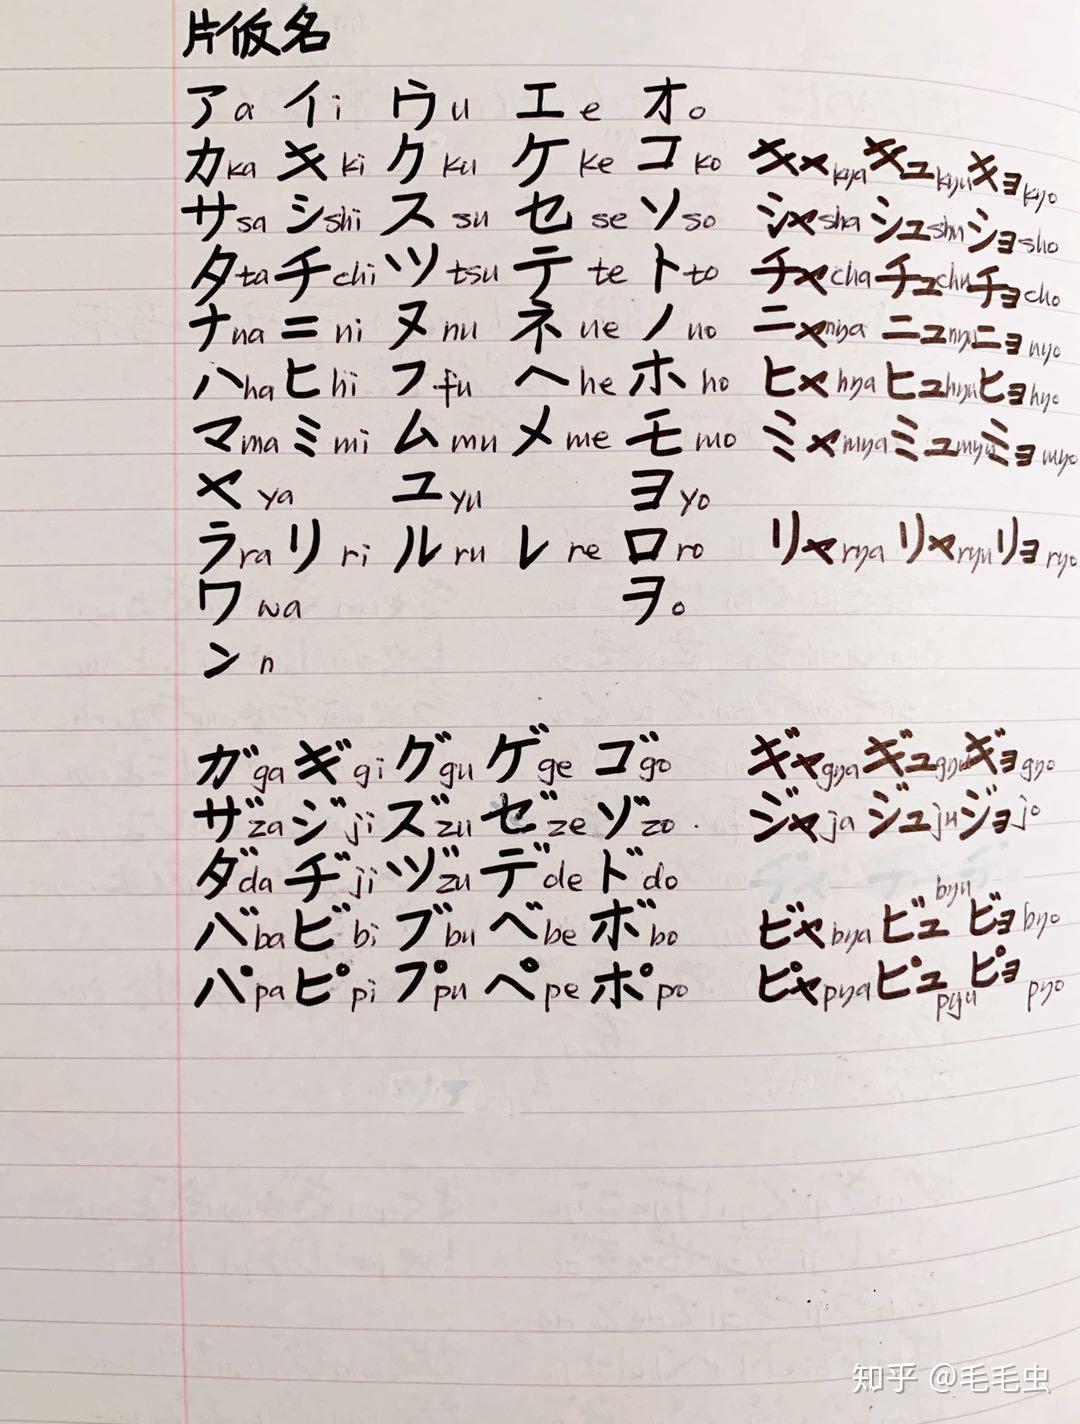 片仮名
アa イi ウu エe オo
カka キki クku ケke コko キャkya キュkyu キョkyo
サsa シshi スsu セse ソso シャsha シュshu ショsho
タta チchi ツtsu テte トto チャcha チュchu チョcho
ナna ニni ヌnu ネne ノno ニャnya ニュnyu ニョnyo
ハha ヒhi フfu ヘhe ホho ヒャhya ヒュhyu ヒョhyo
マma ミmi ムmu メme モmo ミャmya ミュmyu ミョmyo
ヤya ユyu ヨyo
ラra リri ルru レre ロro リャrya リャryu リョryo
ワwa ヲo
ンn
ガga ギgi グgu ゲge ゴgo ギャgya ギュgyu ギョgyo
ザza ジji ズzu ゼze ゾzo ジャja ジュju ジョjo
ダda ヂji ヅzu デde ドdo
バba ビbi ブbu ベbe ボbo ビャbya ビュbyu ビョbyo
パpa ピpi プpu ペpe ポpo ピャpya ピュpyu ピョpyo
知乎 @毛毛虫